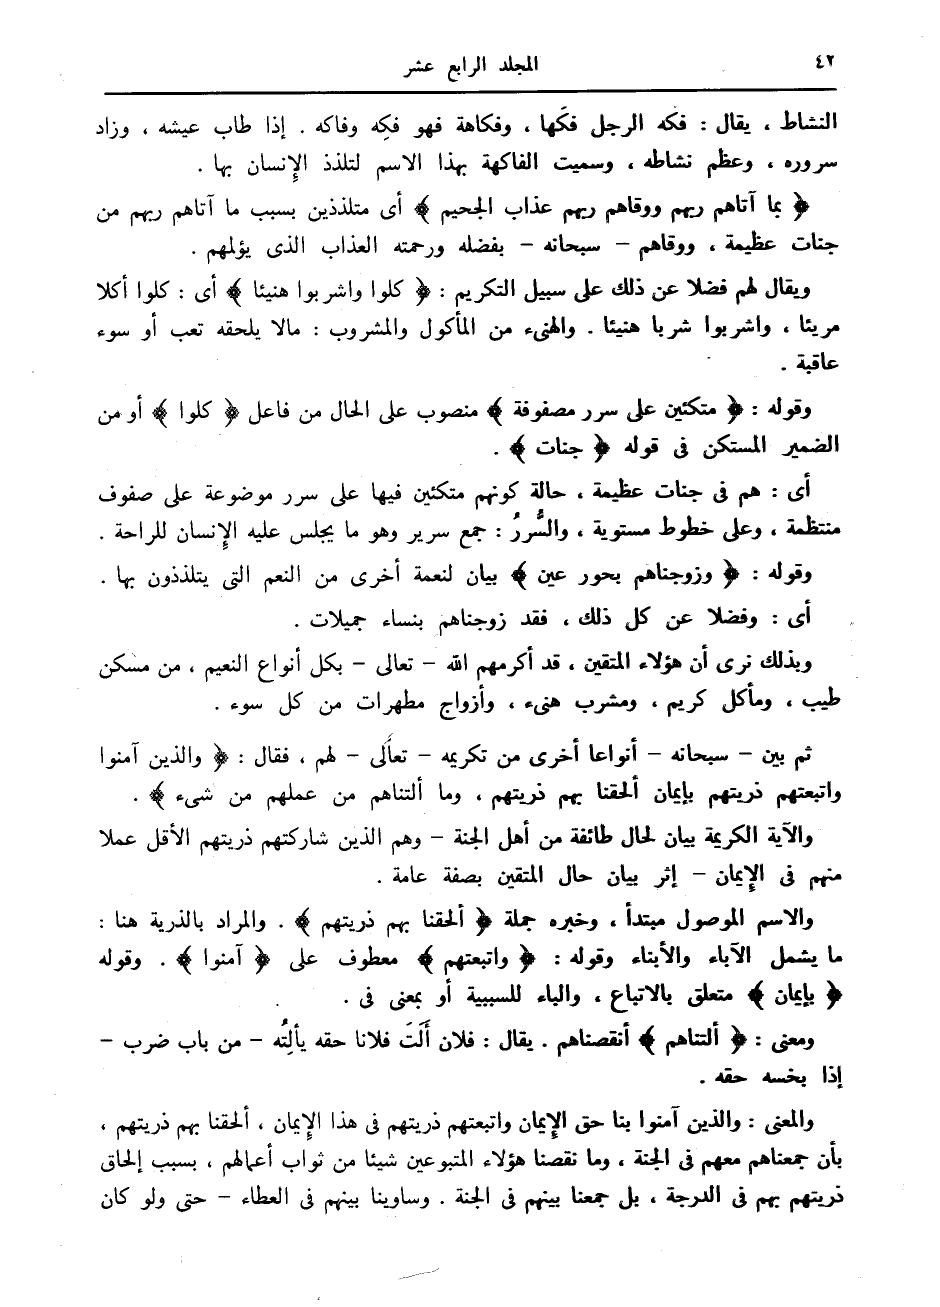 ٤٢
المجلد الرابع عشر
النشاط ، يقال : فكه الرجل فكَها ، وفكاهة فهو فكِه وفاكه . إذا طاب عيشه ، وزاد
سروره ، وعظم نشاطه ، وسميت الفاكهة بهذا الاسم لتلذذ الإنسان بها .
﴿ بما آتاهم ربهم ووقاهم ربهم عذاب الجحيم ﴾ أى متلذذين بسبب ما آتاهم ربهم من
جنات عظيمة ، ووقاهم – سبحانه – بفضله ورحمته العذاب الذى يؤلمهم .
ويقال لهم فضلا عن ذلك على سبيل التكريم : ﴿ كلوا واشربوا هنيئا ﴾ أى : كلوا أكلا
مريئا ، واشربوا شربا هنيئا . والهنىء من المأكول والمشروب : مالا يلحقه تعب أو سوء
عاقبة .
وقوله : ﴿ متكئين على سرر مصفوفة ﴾ منصوب على الحال من فاعل ﴿ كلوا ﴾ أو من
الضمير المستكن فى قوله ﴿ جنات ﴾ .
أى : هم فى جنات عظيمة ، حالة كونهم متكئين فيها على سرر موضوعة على صفوف
منتظمة ، وعلى خطوط مستوية ، والسُّررُ : جمع سرير وهو ما يجلس عليه الإنسان للراحة .
وقوله : ﴿ وزوجناهم بحور عين ﴾ بيان لنعمة أخرى من النعم التى يتلذذون بها .
أى : وفضلا عن كل ذلك ، فقد زوجناهم بنساء جميلات .
وبذلك نرى أن هؤلاء المتقين ، قد أكرمهم الله – تعالى – بكل أنواع النعيم ، من مسكن
طيب ، ومأكل كريم ، ومشرب هنىء ، وأزواج مطهرات من كل سوء .
ثم بين – سبحانه – أنواعا أخرى من تكريمه – تعالى – لهم ، فقال : ﴿ والذين آمنوا
واتبعتهم ذريتهم بإيمان ألحقنا بهم ذريتهم ، وما ألتناهم من عملهم من شىء ﴾ .
والآية الكريمة بيان لحال طائفة من أهل الجنة – وهم الذين شاركتهم ذريتهم الأقل عملا
منهم فى الإيمان – إثر بيان حال المتقين بصفة عامة .
والاسم الموصول مبتدأ ، وخبره جملة ﴿ ألحقنا بهم ذريتهم ﴾ . والمراد بالذرية هنا :
ما يشمل الآباء والأبناء وقوله : ﴿ واتبعتهم ﴾ معطوف على ﴿ آمنوا ﴾ . وقوله
﴿ بإيمان ﴾ متعلق بالاتباع ، والباء للسببية أو بمعنى فى .
ومعنى : ﴿ ألتناهم ﴾ أنقصناهم . يقال : فلان أَلَتَ فلانا حقه يألِتُه – من باب ضرب –
إذا بخسه حقه .
والمعنى : والذين آمنوا بنا حق الإيمان واتبعتهم ذريتهم فى هذا الإيمان ، ألحقنا بهم ذريتهم ،
بأن جمعناهم معهم فى الجنة ، وما نقصنا هؤلاء المتبوعين شيئا من ثواب أعمالهم ، بسبب إلحاق
ذريتهم بهم فى الدرجة ، بل جمعنا بينهم فى الجنة . وساوينا بينهم فى العطاء – حتى ولو كان